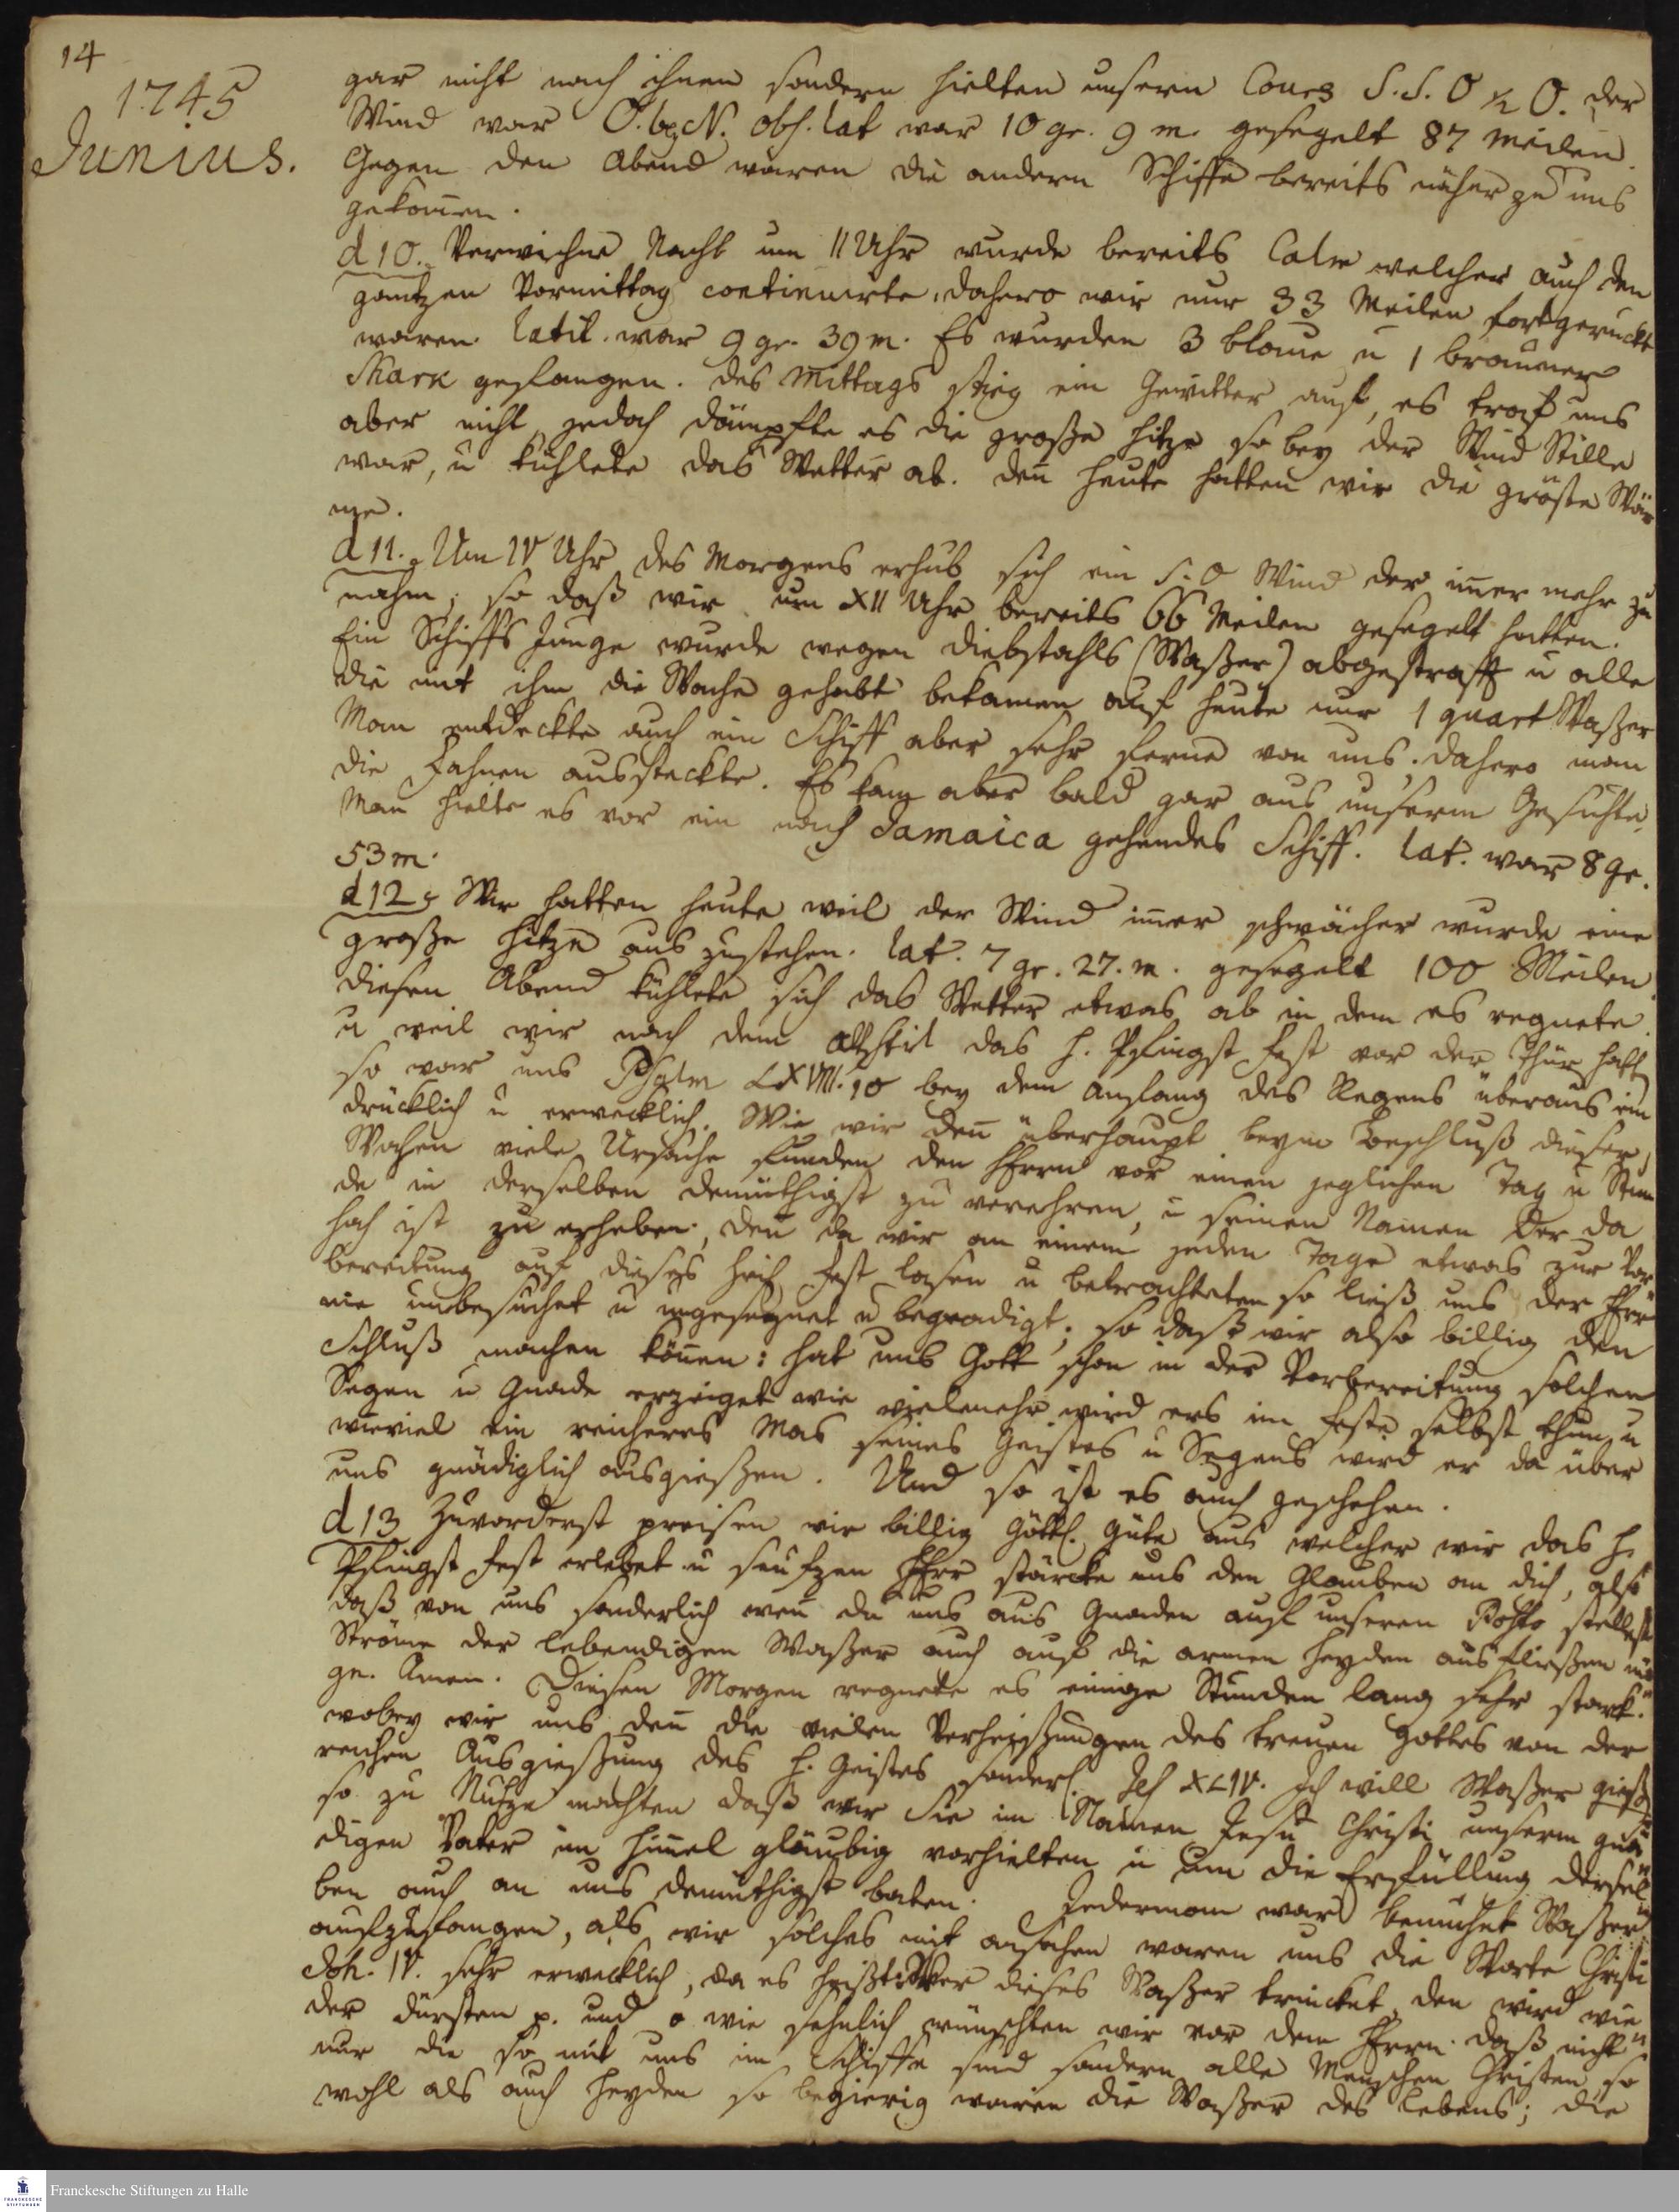 14
1745
Junius.
gar nicht nach ihnen sondern hielten unsern Cours S. S. O ½ O. der
Wind war O. by N. obs. lat war 10 gr. 9 m. gesegelt 87 Meilen.
Gegen den Abend waren die andern Schiffe bereits näher zu uns
gekom̅en.
d 10. Verwichne Nacht um 11 Uhr wurde bereits Calm welcher auch den
gantzen Vormittag continuirte, dahero wir nur 33 Meilen fortgeruckt
waren. Latit. war 9 gr. 39 m. Es wurden 3 blaue u 1 brauner
Shark gefangen. des Mittags stieg ein Gewitter auf, es traf uns
aber nicht, jedoch dämpfte es die große Hitze so bey der Wind Stille
war, u kühlete das Wetter ab. den̅ heute hatten wir die gröste Wär
me.
d 11. Um IV Uhr des Morgens erhub sich ein S. O Wind der im̅er mehr zu
nahm, so daß wir um XII Uhr bereits 66 Meilen gesegelt hatten.
Ein Schiffs Junge wurde wegen Diebstahls (Waßer) abgestrafft u alle
die mit ihm die Wache gehabt bekamen auf heute nur 1 quart Waßer
Man entdeckte auch ein Schiff aber sehr ferne von uns, dahero man
die Fahnen aussteckte. Es kam aber bald gar aus unserm Gesichte,
Man hielte es vor ein nach Jamaica gehendes Schiff. Lat. war 8 gr.
53 m.
d 12 Wir hatten heute weil der Wind im̅er schwächer wurde eine
große Hitze aus zustehen. Lat. 7 gr. 27. m. gesegelt 100 Meilen.
diesen Abend kühlete sich das Wetter etwas ab in dem es regnete.
u weil wir nach dem alt stil das H. Pfingst fest vor der Thür hatt
so war uns Psalm LXVIII. 10 bey dem Anfang des Regens überaus ein
drücklich u erwecklich. Wie wir den̅ überhaupt beym Beschluß dieser
Wochen viele Ursache funden den HErrn vor einen jeglichen Tag u Stun
de in derselben demüthigst zu verehren, u seinen Namen der da
hoch ist zu erheben, den̅ da wir an einem jeden Tage etwas zur Vor
bereitung auf dieses hohe fest lasen u betrachteten so ließ uns der HErr
nie unbesuchet u ungesegnet u begnadigt; so daß wir also billig den
Schluß machen kön̅en: hat uns Gott schon in der Vorbereitung solchen
Segen u Gnade erzeiget wie vielmehr wird ers im feste selbst thun, u
wieviel ein reicheres Mas seines Geistes u Segens wird er da über
uns gnädiglich ausgießen. Und so ist es auch geschehen.
d 13 Zuvorderst preisen wir billig Göttl. Güte aus welcher wir das H.
Pfingst fest erlebet u seufzen HErr stärcke uns den Glauben an dich, also
daß von uns sonderlich wen̅ du uns aus Gnaden auf unseren Posto stellest
Ströme der lebendigen Waßer auch auf die armen Heyden aus fließen mö
ge. Amen. Diesen Morgen regnete es einige Stunden lang sehr starck.
wobey wir uns den̅ die vielen Verheißungen des treuen Gottes von der
reichen Ausgießung des H. Geistes sonderl. Jes XLIV. Ich will Waßer gieß
so zu Nutze machten daß wir Sie im Namen Jesu Christi unserm gnä
digen Vater im Him̅el gläubig vorhielten u um die Erfüllung dersel
ben auch an uns demüthigst baten. Jederman war bemühet Waßer
aufzufangen, als wir solches mit ansahen waren uns die Worte Christi
Joh. IV. sehr erwecklich, da es heißt: Wer dieses Waßer trincket, den wird wie
der dürsten p. und o wie sehnlich wünschten wir vor dem HErrn daß nicht
nur die so mit uns im Schiffe sind sondern alle Menschen Christen so
wohl als auch Heyden so begierig wären die Waßer des Lebens; die
Franckesche Stiftungen zu Halle